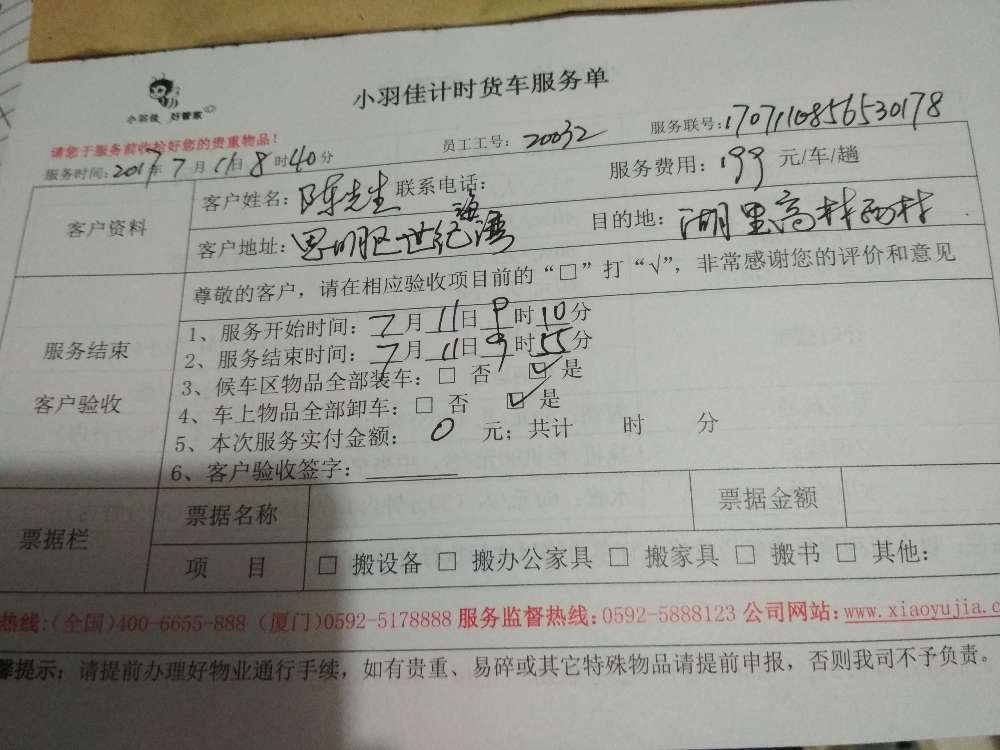 小羽佳计时货车服务单
小羽佳 好管家
请您于服务前收拾好您的贵重物品!
服务时间: 2017年 7 月 11日 8 时40分 员工工号: 20032 服务联号: 1707110856530178
客户资料
客户姓名: 陈先生 联系电话: 服务费用: 199 元/车/趟
客户地址: 思明区世纪海湾 目的地: 湖里高林西村
尊敬的客户,请在相应验收项目前的“□”打“√”,非常感谢您的评价和意见
服务结束
客户验收
1、服务开始时间: 7 月 11 日 9 时 10 分
2、服务结束时间: 7 月 11 日 9 时 55 分
3、候车区物品全部装车: □ 否 ☑ 是
4、车上物品全部卸车: □ 否 ☑ 是
5、本次服务实付金额: 0 元; 共计 时 分
6、客户验收签字:
票据栏
票据名称 票据金额
项 目 □ 搬设备 □ 搬办公家具 □ 搬家具 □ 搬书 □ 其他:
热线:(全国)400-6655-888 (厦门)0592-5178888 服务监督热线:0592-5888123 公司网站:www.xiaoyujia.c
馨提示: 请提前办理好物业通行手续,如有贵重、易碎或其它特殊物品请提前申报,否则我司不予负责。